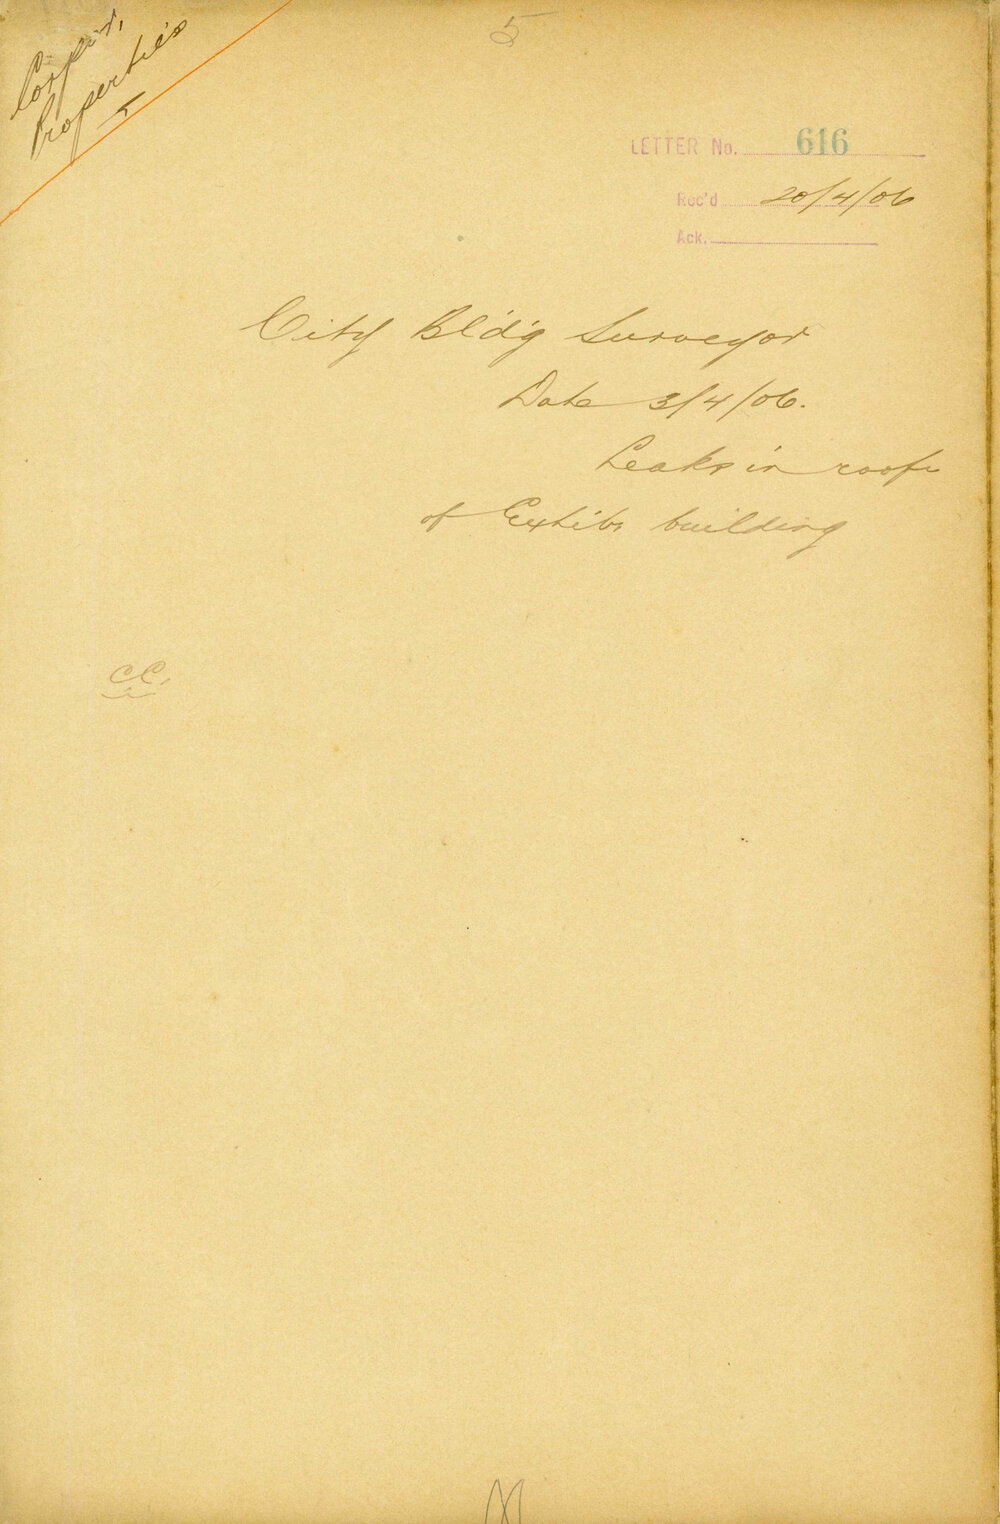 5
Corp'n,
Properties
5
LETTER No. 616
Rec'd 20/4/06
Ack.
City Bld'g Surveyor
Date 3/4/06.
Leaks in roof
of Exhibn building
CC.